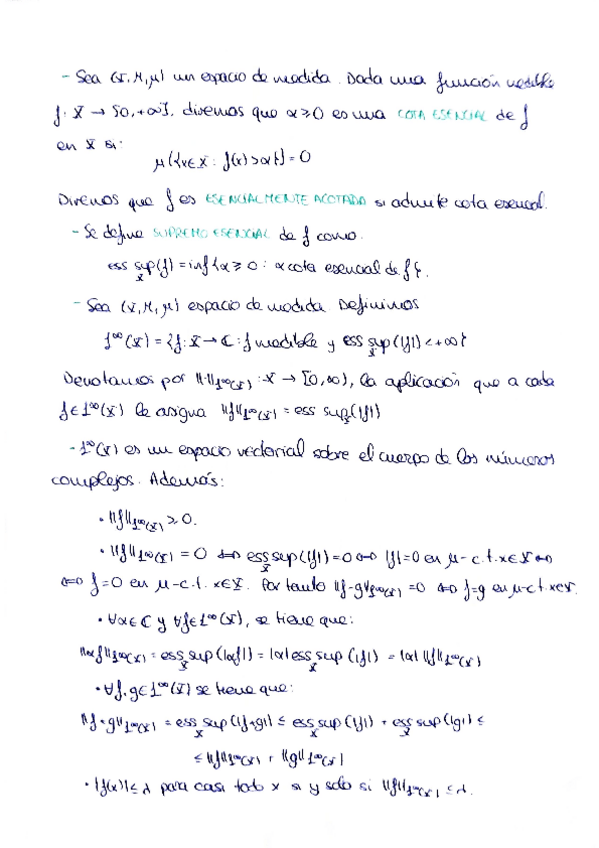 - Sea (X,M,μ) un espacio de medida. Dada una función medible
f: X → [0,+∞], diremos que α≥0 es una COTA ESENCIAL de f
en X si:
μ({x∈X : f(x)>α})=0
Diremos que f es ESENCIALMENTE ACOTADA si admite cota esencial.
- Se define SUPREMO ESENCIAL de f como.
ess sup_X(f)=inf{α≥0: α cota esencial de f}.
- Sea (X,M,μ) espacio de medida. Definimos
L^∞(X)={f:X→ℂ: f medible y ess sup_X(|f|)<+∞}
Denotamos por ||·||_{L^∞(X)}: X → [0,∞), la aplicación que a cada
f∈L^∞(X) le asigna ||f||_{L^∞(X)} = ess sup_X(|f|)
- L^∞(X) es un espacio vectorial sobre el cuerpo de los números
complejos. Además:
• ||f||_{L^∞(X)} ≥ 0.
• ||f||_{L^∞(X)} = 0 ⇔ ess sup_X(|f|)=0 ⇔ |f|=0 en μ-c.t. x∈X ⇔
⇔ f=0 en μ-c.t. x∈X. Por tanto ||f-g||_{L^∞(X)}=0 ⇔ f=g en μ-c.t. x∈X.
• ∀α∈ℂ y ∀f∈L^∞(X), se tiene que:
||αf||_{L^∞(X)} = ess sup_X(|αf|) = |α| ess sup_X(|f|) = |α| ||f||_{L^∞(X)}
• ∀f,g∈L^∞(X) se tiene que:
||f+g||_{L^∞(X)} = ess sup_X(|f+g|) ≤ ess sup_X(|f|) + ess sup_X(|g|) ≤
≤ ||f||_{L^∞(X)} + ||g||_{L^∞(X)}
• |f(x)|≤λ para casi todo x si y solo si ||f||_{L^∞(X)} ≤ λ.